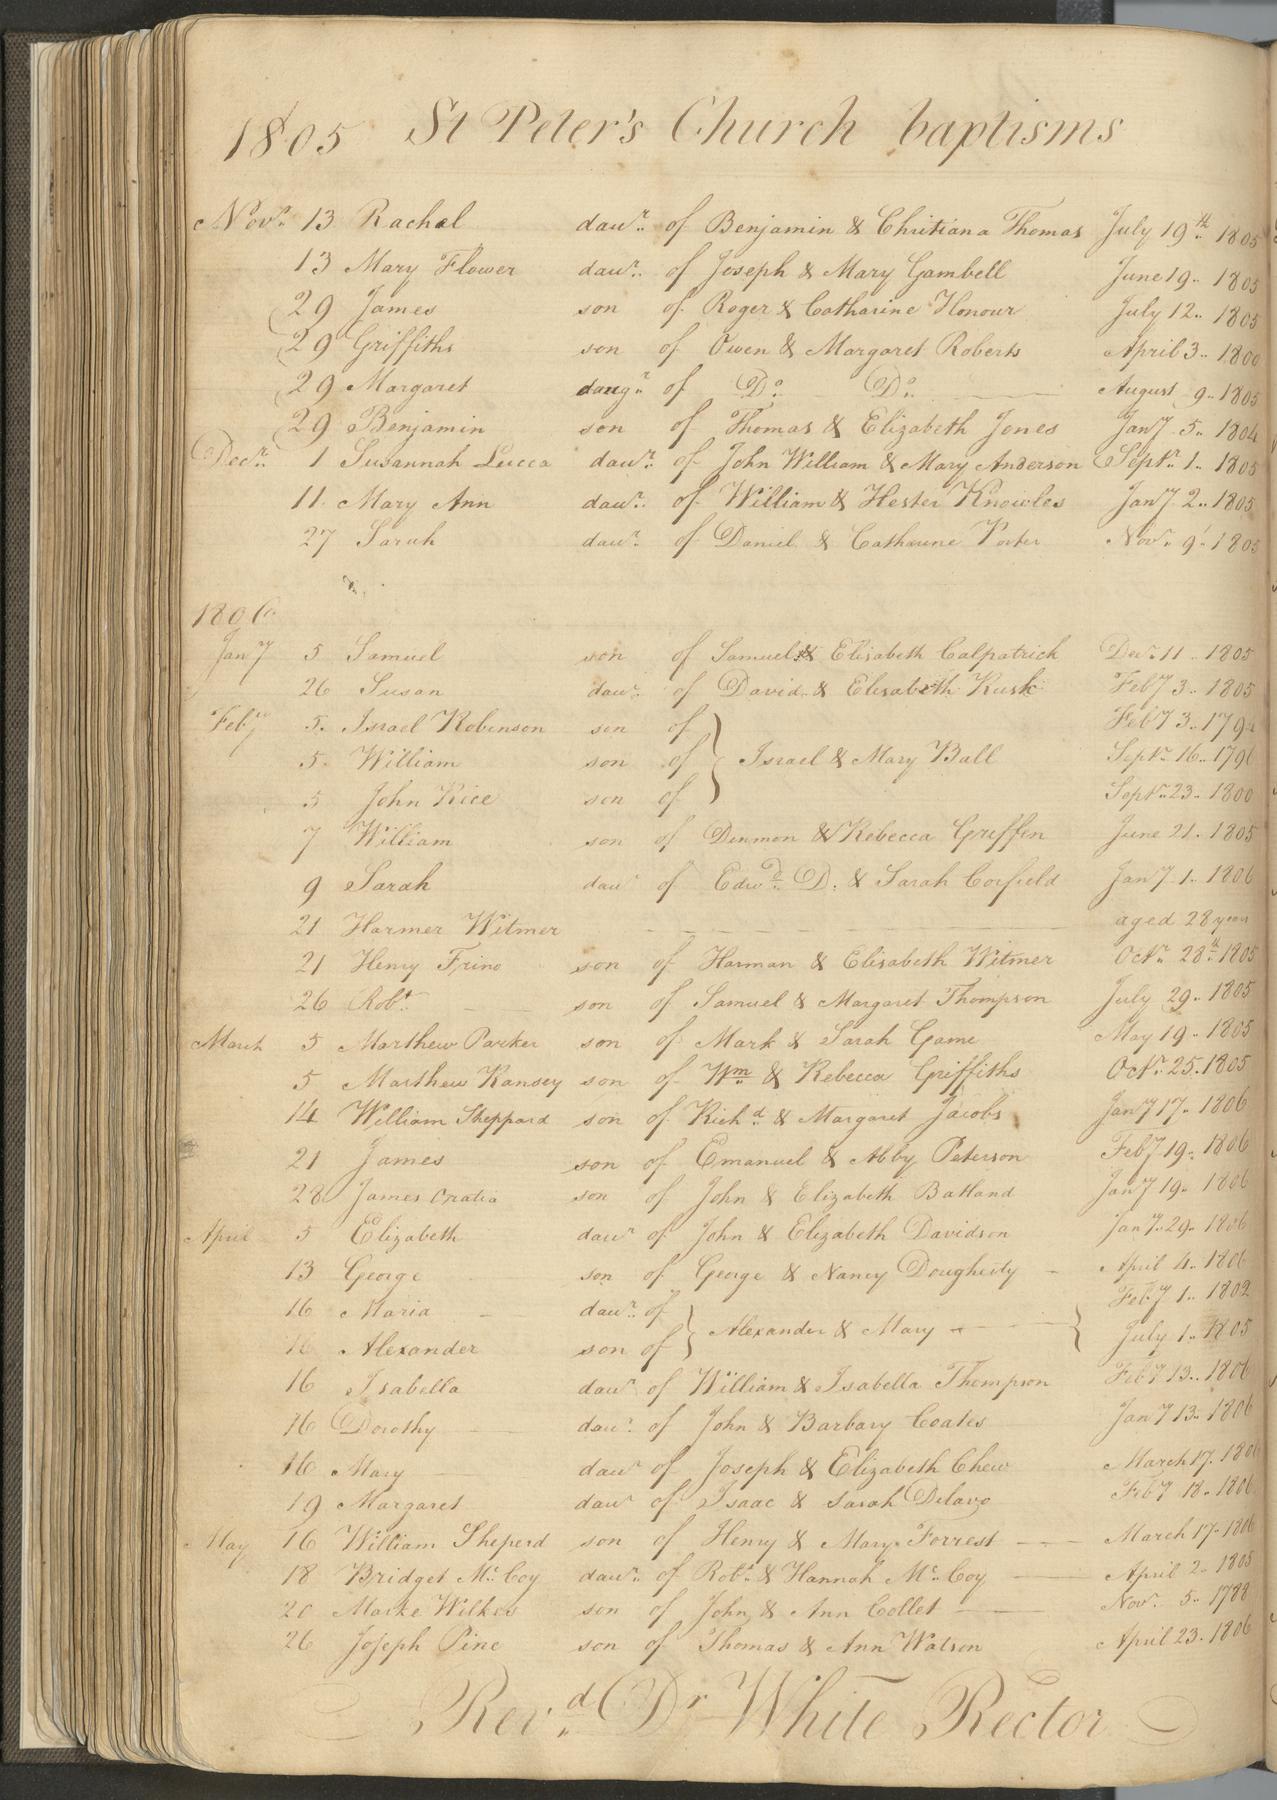 1805 St Peter's Church baptisms
Novr. 13 Rachel dawr. of Benjamin & Christiana Thomas July 19th 1805
13 Mary Flower dawr. of Joseph & Mary Gambell June 19.. 1805
29 James son of Roger & Catharine Honour July 12.. 1805
29 Griffiths son of Owen & Margaret Roberts April 3.. 1800
29 Margaret daugr of Do. Do. August 9.. 1805
29 Benjamin son of Thomas & Elizabeth Jones Jany 5.. 1804
Decr. 1 Susannah Lucca dawr. of John William & Mary Anderson Septr. 1.. 1805
11 Mary Ann dawr. of William & Hester Knowles Jany 2.. 1805
27 Sarah dawr. of Daniel & Catharine Porter Novr. 9.. 1805
1806
Jany 5 Samuel son of Samuel & Elisabeth Calpatrick Decr. 11.. 1805
26 Susan dawr. of David & Elisabeth Rusk Feby 3.. 1805
Feby 5. Israel Robinson son of Feby 3.. 179
5. William son of } Israel & Mary Ball Septr. 16.. 179
5 John Rice son of Septr. 23.. 1800
7 William son of Denmon & Rebecca Griffin June 21.. 1805
9 Sarah dawr of Edwd. D. & Sarah Corfield Jany 1.. 1806
21 Harmer Witmer aged 28 years
21 Henry son of Harman & Elisabeth Witmer Octr. 28th 1805
26 Robt. son of Samuel & Margaret Thompson July 29.. 1805
March 5 Marthew Parker son of Mark & Sarah Game May 19.. 1805
5 Marthew Ransey son of Wm & Rebecca Griffiths Octr. 25. 1805
14 William Sheppard son of Richd. & Margaret Jacobs Jany 17.. 1806
21 James son of Emanuel & Abby Peterson Feby 19.. 1806
28 James son of John & Elizabeth Batland Jany 19.. 1806
April 5 Elizabeth dawr of John & Elizabeth Davidson Jany. 29.. 1806
13 George son of George & Nancy Dougherty April 4.. 1806
16 Maria dawr. of Feby 1.. 1802
16 Alexander son of } Alexander & Mary } July 1.. 1805
16 Isabella dawr of William & Isabella Thompson Feby 13.. 1806
16 Dorothy dawr. of John & Barbary Coates Jany 13.. 1806
16 Mary dawr of Joseph & Elizabeth Chew March 17. 180
19 Margaret dawr of Isaac & Sarah Delavo Feby 18.. 1806
May 16 William Sheperd son of Henry & Mary Forrest March 17.. 1806
18 Bridget Mc. Coy dawr. of Robt. & Hannah Mc. Coy April 2.. 1805
20 Marke Wilkes son of John & Ann Collet Novr. 5.. 1788
26 Joseph Pine son of Thomas & Ann Watson April 23. 1806
Revd. Dr White Rector